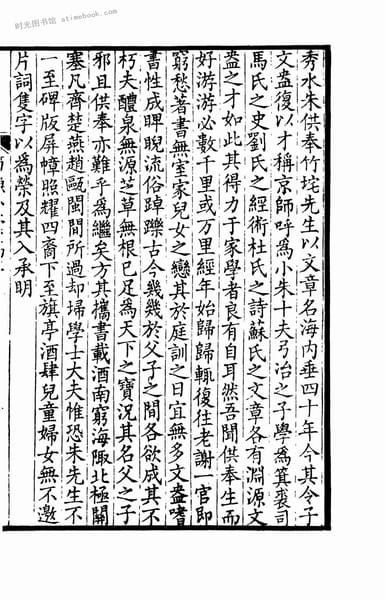 时光图书馆 atimebook.com
秀水朱供奉竹垞先生以文章名海内垂四十年今其令子
文盎復以才稱京師呼為小朱十夫弓冶之子學為箕裘司
馬氏之史劉氏之經術杜氏之詩蘇氏之文章各有淵源文
盎之才如此其得力于家學者良有自耳然吾聞供奉生而
好游游必數千里或万里經年始歸歸輒復往老謝一官即
窮愁著書無室家兒女之戀其於庭訓之日宜無多文盎嗜
書性成睥睨流俗踔躒古今幾幾於父子之間各欲成其不
朽夫醴泉無源芝草無根已足為天下之寶況其名父之子
邪且供奉亦難乎為繼矣方其攜書載酒南窮海陬北極關
塞凡齊楚燕趙甌閩間所過却埽學士大夫惟恐朱先生不
一至碑版屏幛照耀四裔下至旗亭酒肆兒童婦女無不邀
片詞隻字以為榮及其入承明